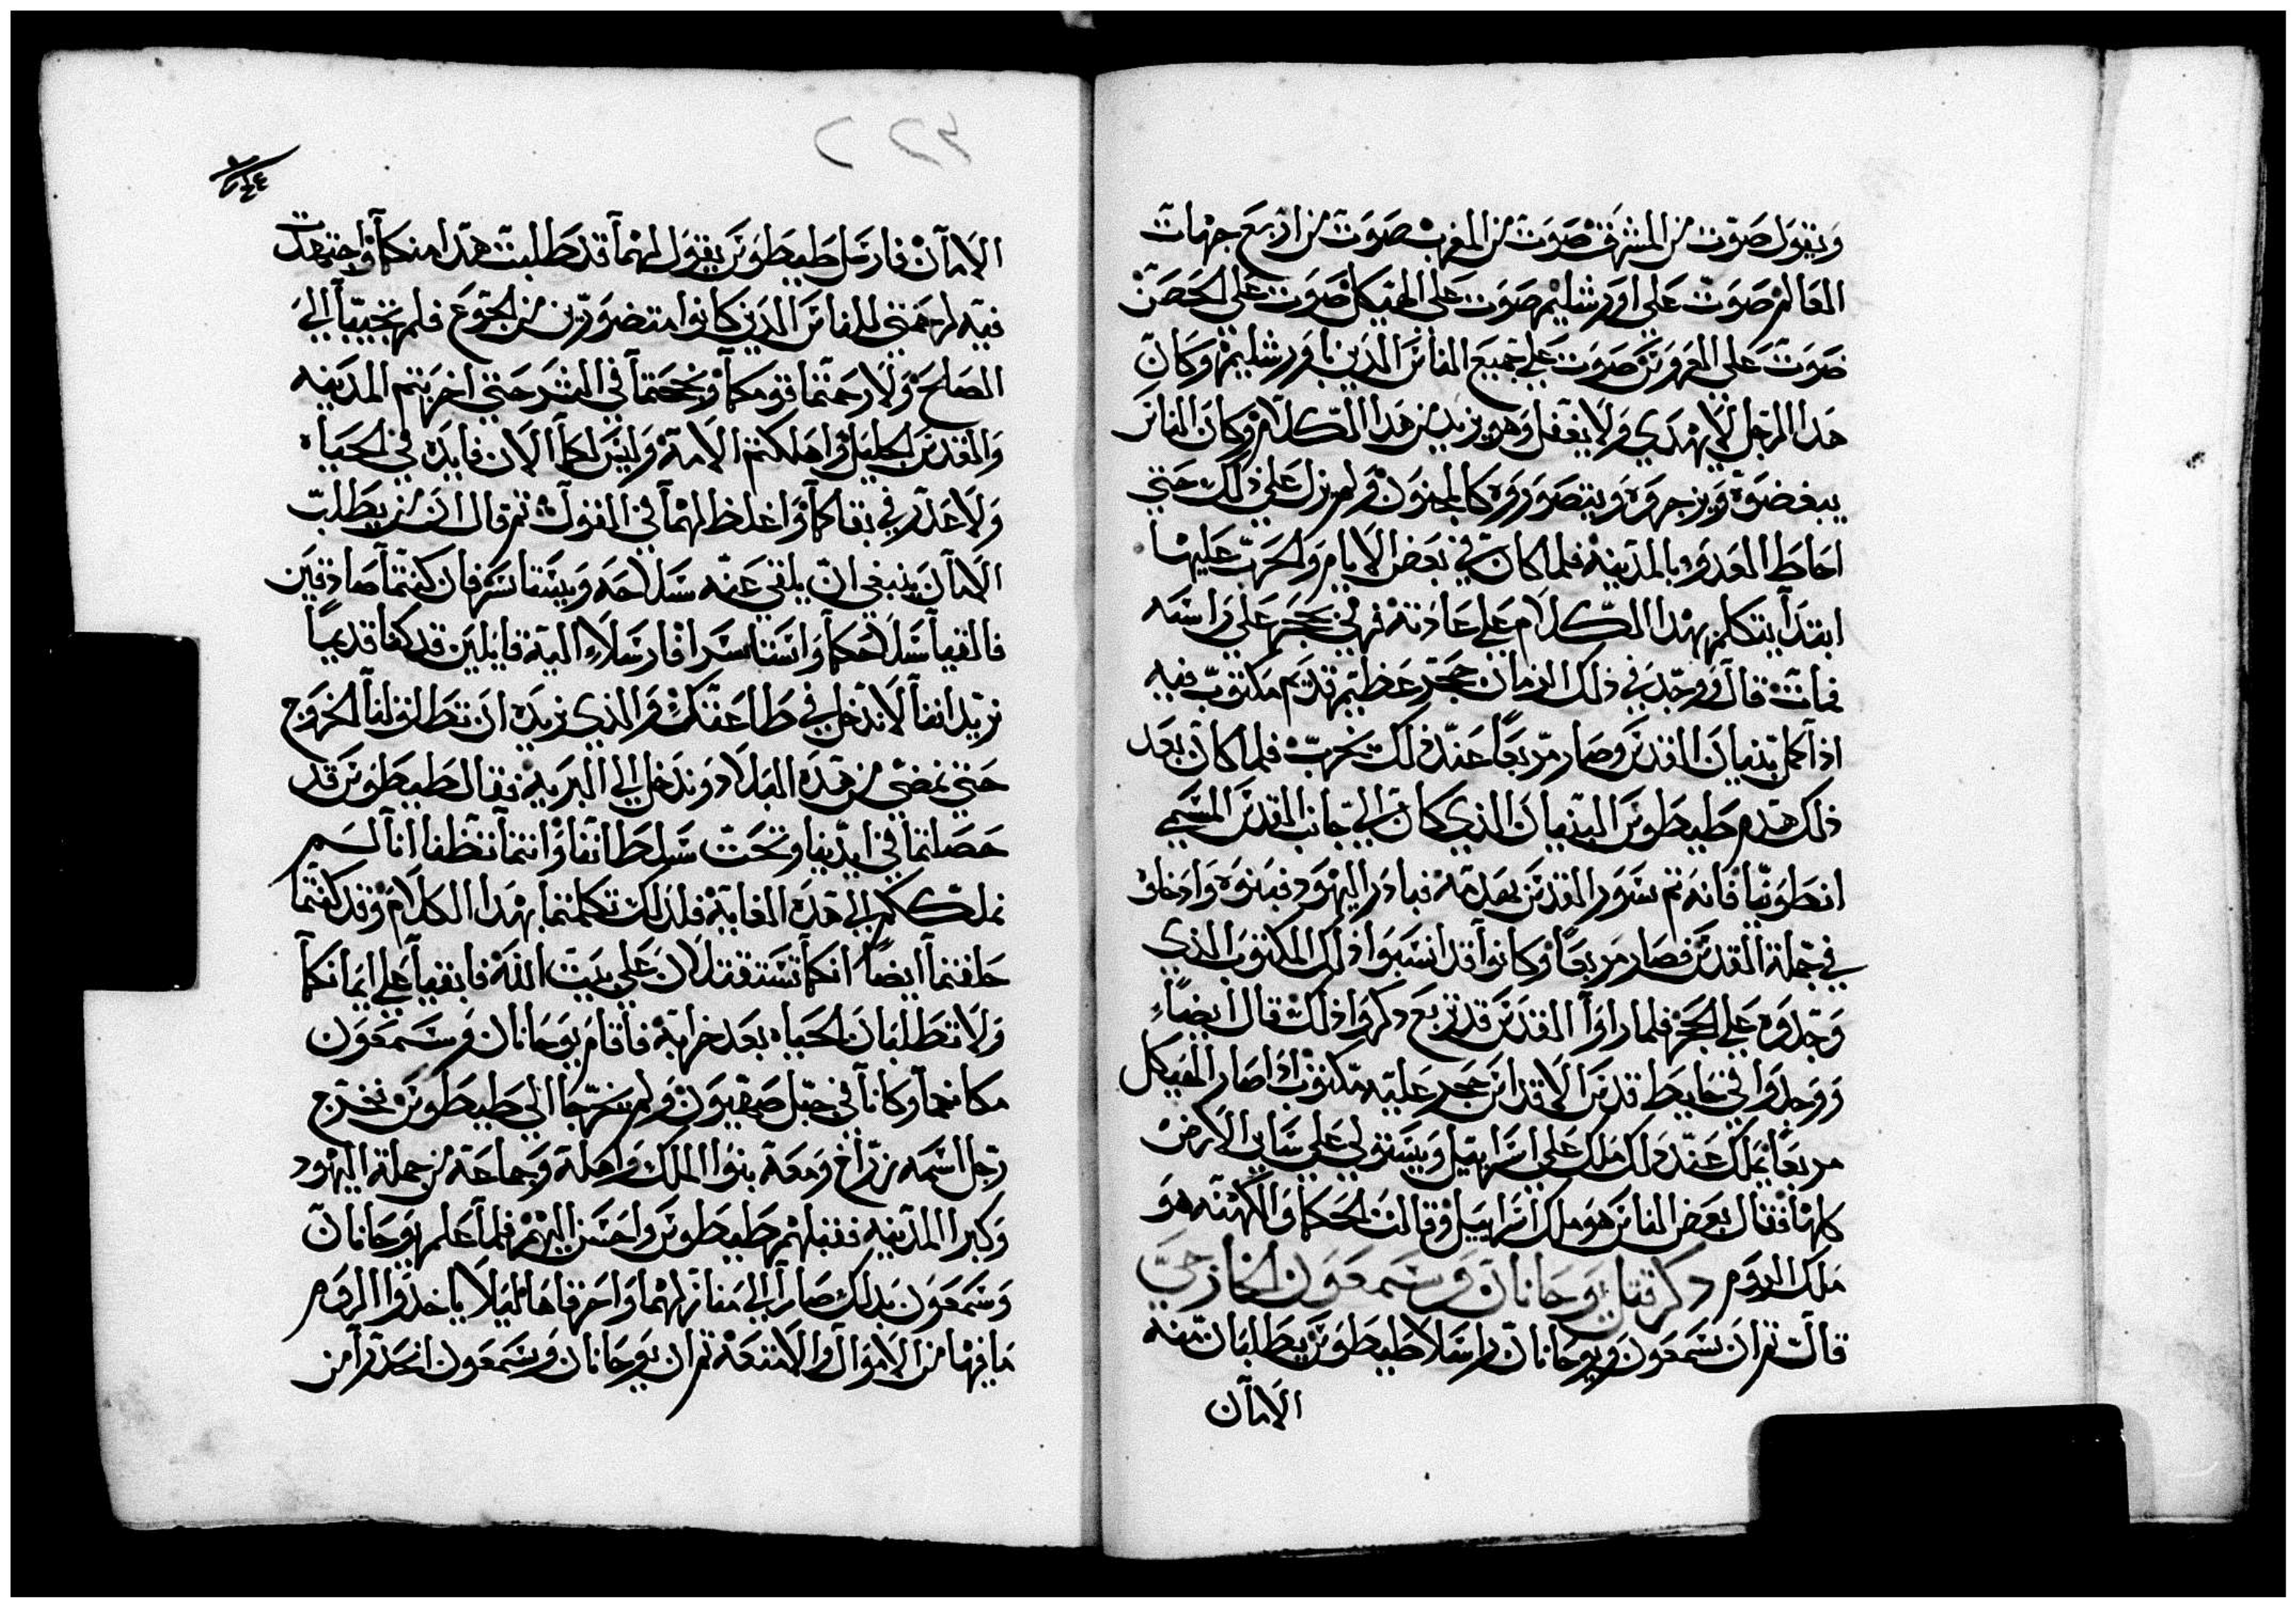 ويقول صوت من المشرق صوت من المغرب صوت من اربع جهات
العالم صوت علي اورشليم صوت علي الهيكل صوت علي الحصن
صوت علي العروس صوت علي جميع الناس الذين باورشليم وكان
هدا الرجل لا يهدي ولا يغفل وهو يزيد من هدا الكلام وكان الناس
يبغضوه ويزجروه ويتصوروه كالمجنون ولم يزل علي ذلك حتي
احاط العدو بالمدينه فلما كان في بعض الايام والحرب عليها
ابتدا يتكلم بهدا الكلام علي عادته فرمي بحجر علي راسه
فمات قال ووجد في ذلك الزمان حجر عظيم قديم مكتوب فيه
اذا كمل بنيان القدس وصار مربعا عند ذلك يخرب فلما كان بعد
ذلك هدم طيطوس البنيان الذي كان الي جانب المقدس المسمي
انطونيا فانه تم سور القدس بعدمه فبادر اليهود فبنوه وادخلو
في جملة القدس فصار مربعا وكانوا قد انسيوا ذلك المكتوب الذي
وجدوه علي الحجر فلما راوا القدس قد تربع دكروا ذلك قال ايضاء
ووجدوا في حايط قدس الاقداس حجر عليه مكتوب اذا صار الهيكل
مربعا يملك عند ذلك ملك علي اسراييل ويستولي علي ساير الارض
كلها فقال بعض الناس هو ملك اسراييل وقالت الحكما والكهنه هو
ملك الروم دكر قتل يوحانان وسمعون الخارجي
قال ثم ان سمعون ويوحانان راسلا طيطوس يطلبان منه
الامان
٢٢٣
الامان فارسل طيطوس يقول لهما قد طلبت هدا منكما واجتهدت
فيه لرحمتي للناس الدين كانوا متضورين من الجوع فلم تجيبا الي
الصلح ولا رحمتما قومكما ولججتما في الشر حتي اخربتم المدينه
والقدس الجليل واهلكتم الامة وليس لكما الان فايده في الحياه
ولا عدر في بقاكما واغلظ لهما في القول ثم قال ان من يطلب
الامان ينبغي ان يلقي عنه سلاحه ويستاسر فان كنتما صادقين
فالقيا سلاحكما واستاسرا فارسلاء اليه قايلين قد كنا قديما
نريد اننا لا ندخل في طاعتك والذي نريده ان تطلق لنا الخروج
حتي نمضي من هده البلاد وندخل الي البريه فقال طيطوس قد
حصلتما في ايدينا وتحت سلطاننا وانتما تظنا انا لسم
نملككم الي هده الغاية فلدلك تكلمتما بهدا الكلام وقد كنتما
حلفتما ايضا انكما تستقتلان علي بيت الله فابقيا علي ايمانكما
ولا تطلبان الحياه بعد خرابه فاقام يوحانان وسمعون
مكانهما وكانا في جبل صهيون ولم يخرجا الي طيطوس فخرج
رجل اسمه زراخ ومعه بنوا الملك واهله وجماعة من جملة اليهود
وكبرا المدينه فقبلهم طيطوس واحسن اليهم فلما علم يوحانان
وسمعون بدلك صارا الي منازلهما واحرقاها ليلا ياخدوا الروم
ما فيها من الاموال والامتعة ثم ان يوحانان وسمعون انحدرا من